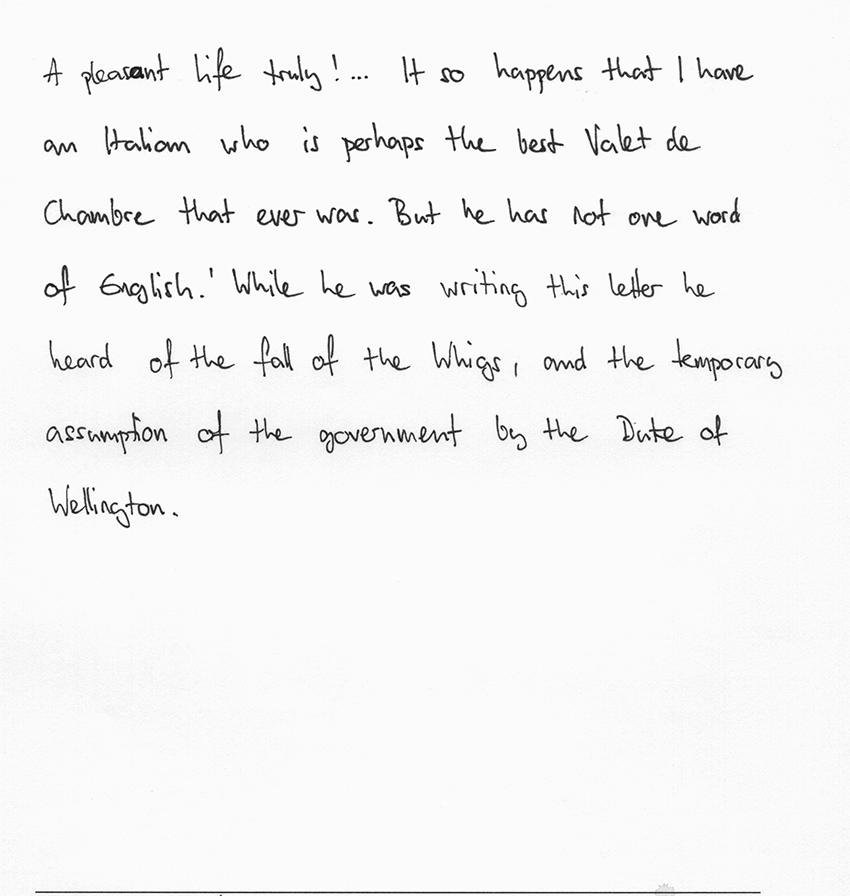 A pleasant life truly!... It so happens that I have
an Italian who is perhaps the best Valet de
Chambre that ever was. But he has not one word
of English.' While he was writing this letter he
heard of the fall of the Whigs, and the temporary
assumption of the government by the Duke of
Wellington.